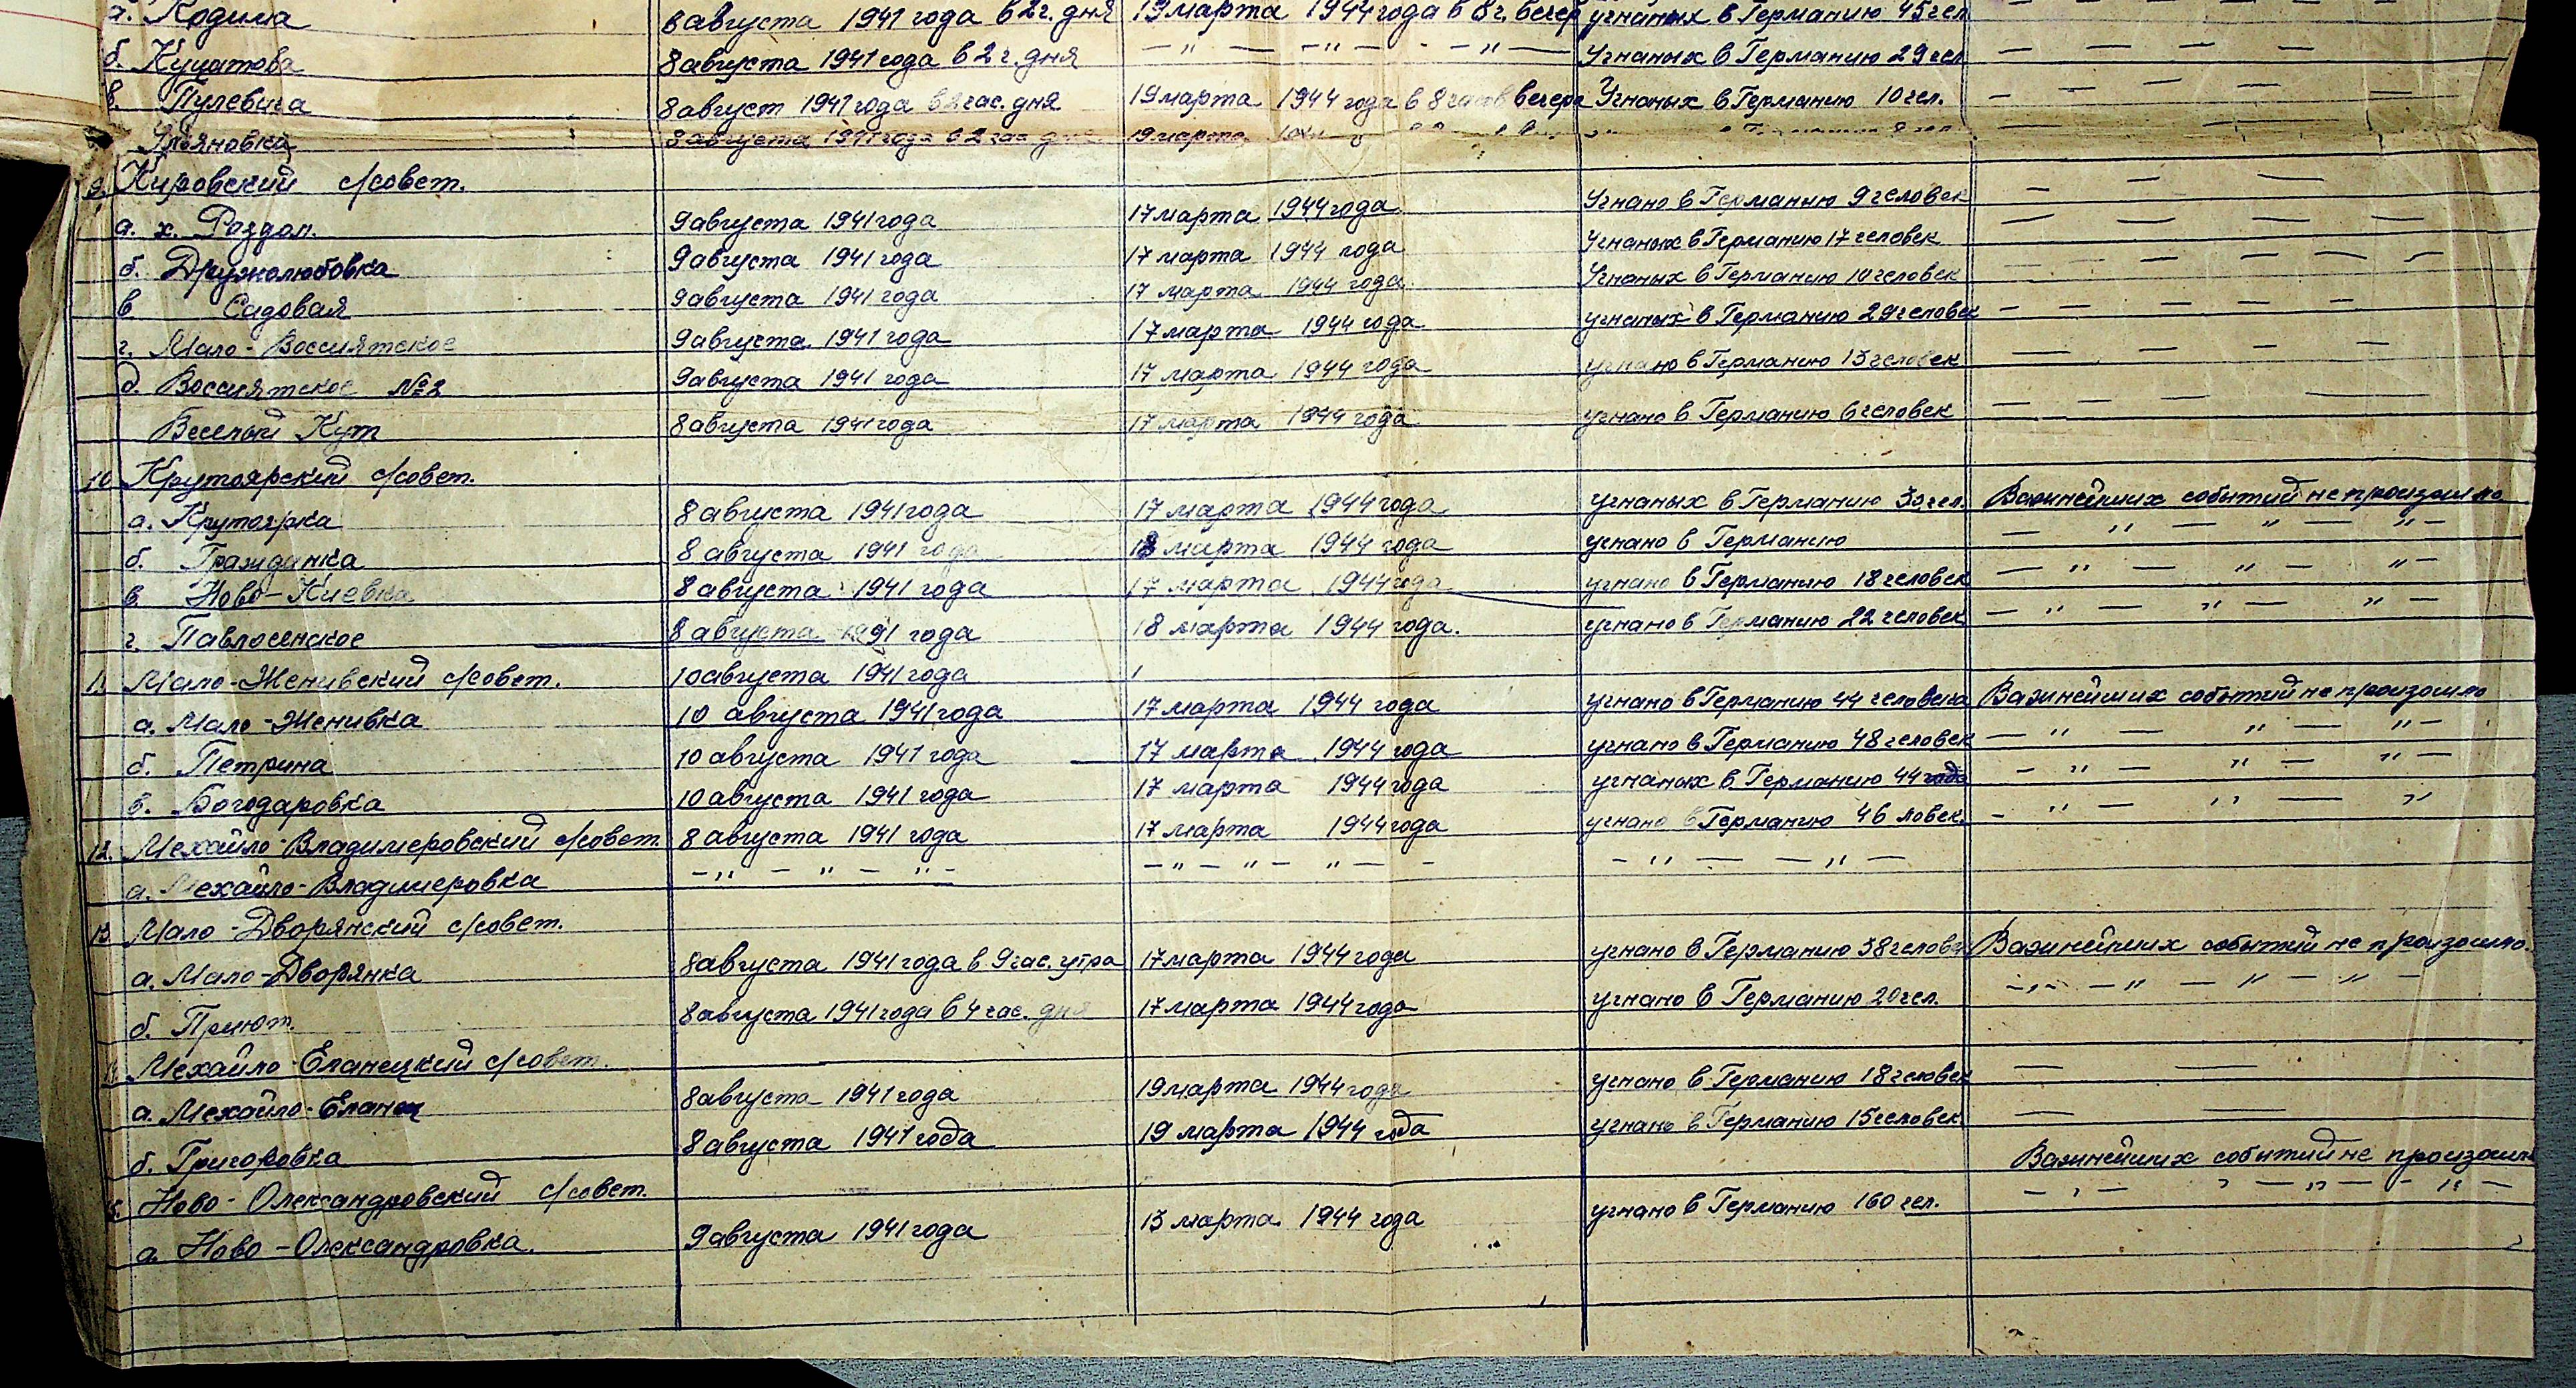 а. Родина 8 августа 1941 года в 2 г. дня 19 марта 1944 года в 8 г. вечер угнаных в Германию 45 чел
б. 8 августа 1941 года в 2 г. дня — " — — " — - — " — Угнаных в Германию 29 чел — — — — —
в. Пулевича 8 август 1941 года в 2 час. дня 19 марта 1944 года в 8 часов вечера Угнаных в Германию 10 чел. — — — — —
Ульяновка 8 августа 1941 года в 2 час дня 19 марта
9. Кировский с/совет.
а. х. Раздол. 9 августа 1941 года 17 марта 1944 года Угнано в Германию 9 человек — — —
б. Дружолюбовка 9 августа 1941 года 17 марта 1944 года Угнаных в Германию 17 человек — — — — —
в Садовая 9 августа 1941 года 17 марта 1944 года Угнаных в Германию 10 человек — — — — —
г. Мало-Воссиятское 9 августа 1941 года 17 марта 1944 года угнаных в Германию 29 человек — — — — —
д. Воссиятское №2 9 августа 1941 года 17 марта 1944 года угнано в Германию 13 человек — — — —
Веселый Кут 8 августа 1941 года 17 марта 1944 года угнано в Германию 6 человек — — — — —
10 Крутоярский с/совет.
а. Крутоярка 8 августа 1941 года 17 марта 1944 года угнаных в Германию 30 чел. Важнейших событий не произошло
б. Гражданка 8 августа 1941 года 18 марта 1944 года угнано в Германию — " — " — " —
в Ново-Киевка 8 августа 1941 года 17 марта 1944 года угнано в Германию 18 человек — " — " — " —
г. Павловское 8 августа 1941 года 18 марта 1944 года. угнано в Германию 22 человек — " — " — " —
11 Мало-Женивский с/совет. 10 августа 1941 года
а. Мало-Женивка 10 августа 1941 года 17 марта 1944 года угнано в Германию 44 человека Важнейших событий не произошло
б. Петрина 10 августа 1941 года 17 марта 1944 года угнано в Германию 48 человек — " — " — " —
в. Богодаровка 10 августа 1941 года 17 марта 1944 года угнаных в Германию 44 года — " — " — " —
12. Мехайло-Владимеровский с/совет. 8 августа 1941 года 17 марта 1944 года угнано в Германию 46 ловек. — " — " — "
а. Мехайло-Владимеровка — " — " — " — — " — " — " — — — " — — " —
13 Мало-Дворянский с/совет.
а. Мало-Дворянка 8 августа 1941 года в 9 час. утра 17 марта 1944 года угнано в Германию 38 челове Важнейших событий не произошло.
б. Приют. 8 августа 1941 года в 4 час. дня 17 марта 1944 года угнано в Германию 20 чел. — " — — " — " — " —
14 Мехайло-Еланецкий с/совет.
а. Мехайло-Еланец 8 августа 1941 года 19 марта 1944 года угнано в Германию 18 человек — —
б. Григоровка 8 августа 1941 года 19 марта 1944 года угнано в Германию 15 человек. — —
15. Ново-Олександровский с/совет. Важнейших событий не произошло
а Ново-Олександровка. 9 августа 1941 года 13 марта 1944 года угнано в Германию 160 чел. — " — " — " — " —